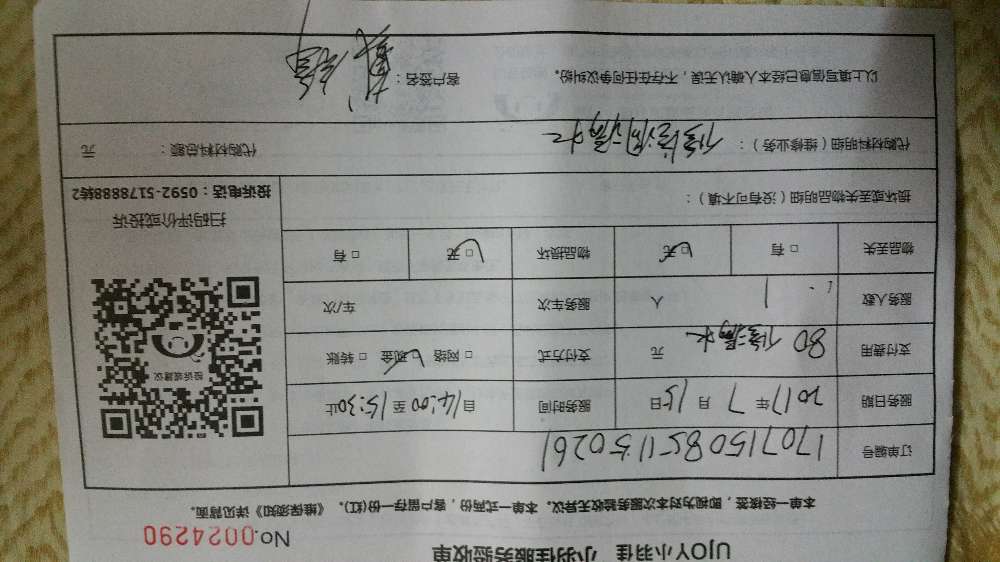 UJOY小羽佳 小羽佳服务验收单
No.0024290
本单一经核签，即视为对本次服务验收无异议。本单一式两份，客户留存一份(红)。《维保须知》详见背面。
订单编号 1707150851150261
服务日期 2017年 7 月 15 日 服务时间 自 14:00 至 15:30 止
支付费用 80 修漏水 元 支付方式 □ 网络 □ 现金 □ 转账
服务人数 1 人 服务车次 车/次
物品丢失 □ 有 □ 无 物品损坏 □ 无 □ 有
投诉或建议
扫码评价或投诉
投诉电话：0592-5178888转2
损坏或丢失物品明细（没有可不填）：
代购材料明细（维修业务）： 代购材料总额： 元
以上填写信息已经本人确认无误，不存在任何争议纠纷。 客户签名：